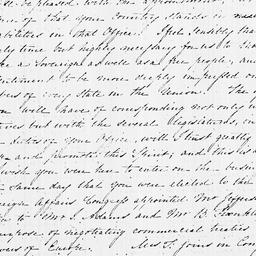 ill be pleased with the appointment,
of that your Country stands in need
abilities in that Office. I feel sensibly tha
ly time but highly necessary for us to
ke a Sovereign as well as a free people, and
sentiment to be more deeply impressed on
bers of every State in the Union. The
on will have of corresponding not only w
tives but with the several legislatures, in
duties of your Office, will I trust greatly
and promote this Spirit; and this was
wish you were here to enter on the busin
same day that you were elected to the
reign Affairs Congress appointed Mr Jeffers
to Mr J. Adams and Mr B. Frankl
urpose of negotiating commercial treaties
wers of Europe. Mr J. joins in Com